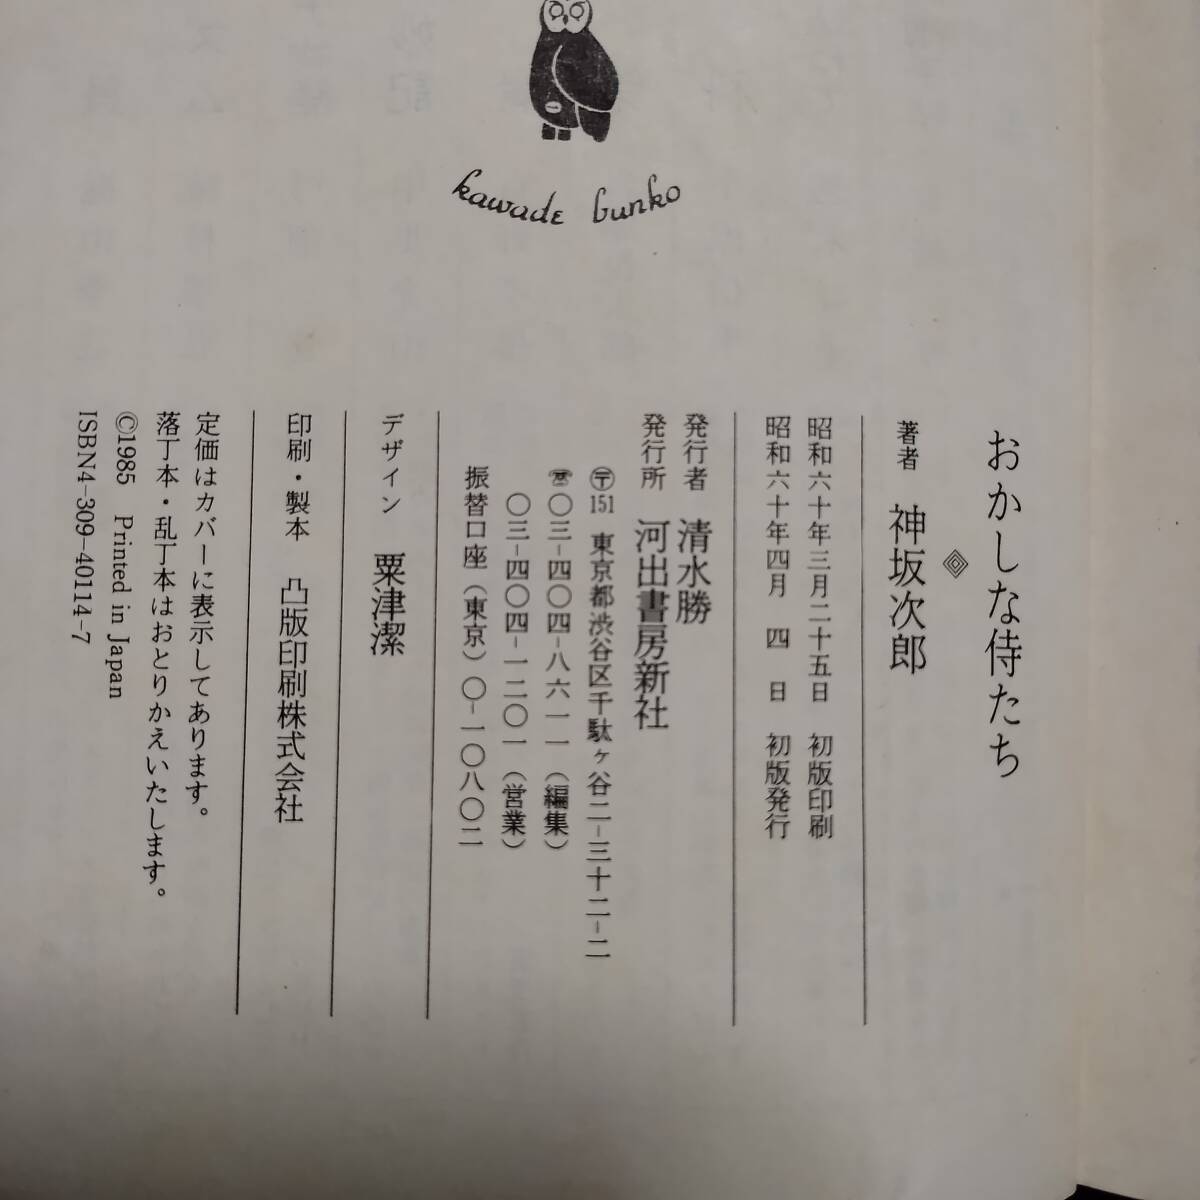 kawade bunko
おかしな侍たち
著者 神坂次郎
昭和六十年三月二十五日 初版印刷
昭和六十年四月 四 日 初版発行
発行者 清水勝
発行所 河出書房新社
〒151 東京都渋谷区千駄ヶ谷二-三十二-二
☎〇三-四〇四-八六一一(編集)
〇三-四〇四-一二〇一(営業)
振替口座(東京)〇-一〇八〇二
デザイン 粟津潔
印刷・製本 凸版印刷株式会社
定価はカバーに表示してあります。
落丁本・乱丁本はおとりかえいたします。
©1985 Printed in Japan
ISBN4-309-40114-7